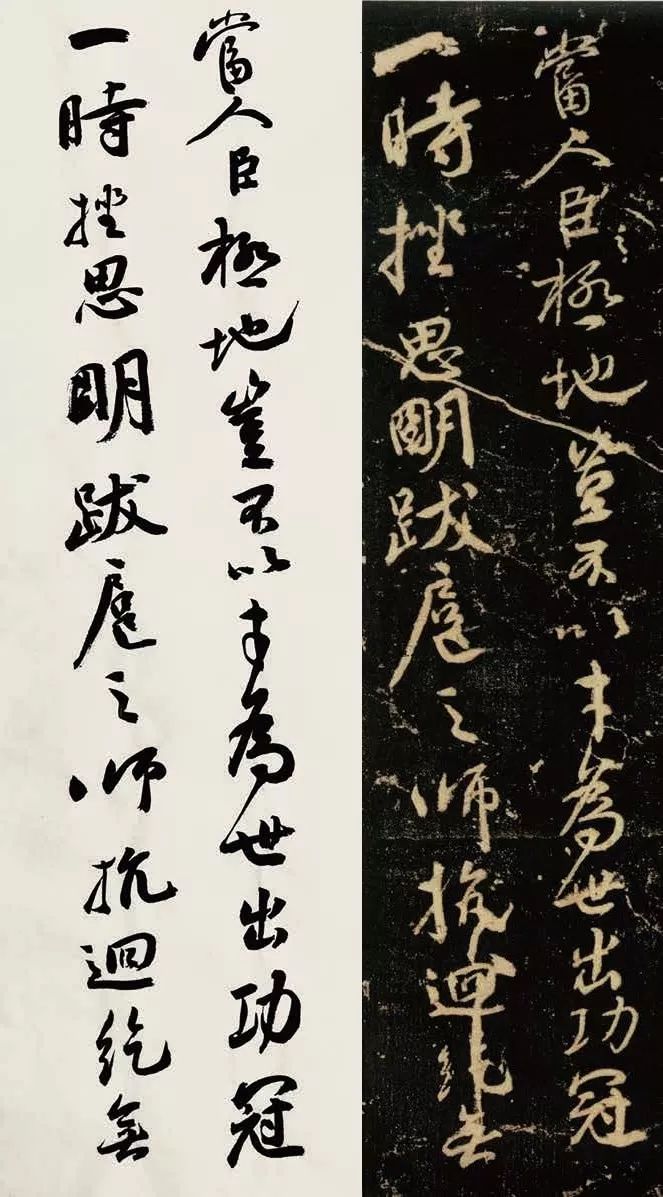 當人臣之極地豈不以才為世出功冠
一時挫思明跋扈之師抗迴紇無
當人臣極地豈不以才為世出功冠
一時挫思明跋扈之師抗迴紇無